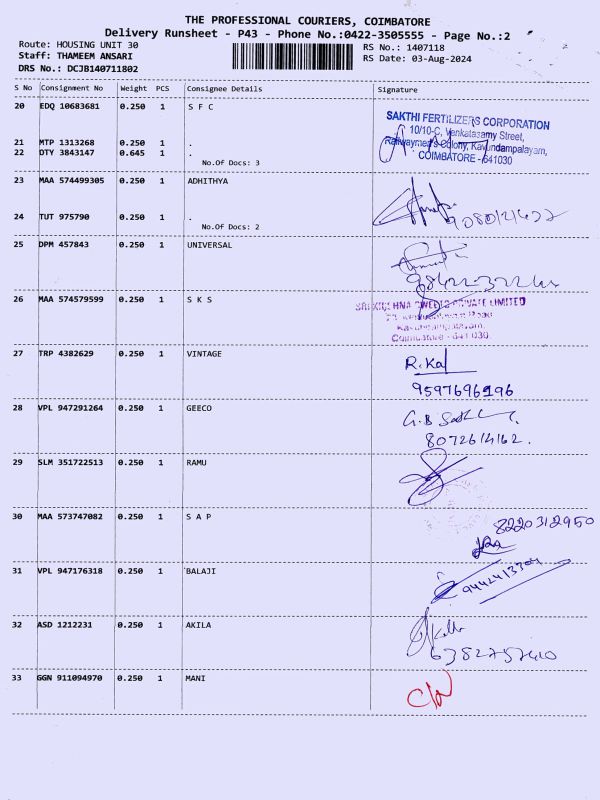 THE PROFESSIONAL COURIERS, COIMBATORE
Delivery Runsheet - P43 - Phone No.:0422-3505555 - Page No.:2
Route: HOUSING UNIT 30
RS No.: 1407118
Staff: THAMEEM ANSARI
RS Date: 03-Aug-2024
DRS No.: DCJB140711802
S No Consignment No Weight PCS Consignee Details Signature
20 EDQ 10683681 0.250 1 S F C
SAKTHI FERTILIZERS CORPORATION
10/10-C, Venkatasamy Street,
Colony, Kavundampalayam,
COIMBATORE - 641030
21 MTP 1313268 0.250 1 .
22 DTY 3843147 0.645 1 .
No.Of Docs: 3
23 MAA 574499305 0.250 1 ADHITHYA
24 TUT 975790 0.250 1 .
No.Of Docs: 2
25 DPM 457843 0.250 1 UNIVERSAL
26 MAA 574579599 0.250 1 S K S
SRI KRISHNA SWEETS PRIVATE LIMITED
Road
Coimbatore - 641 030.
27 TRP 4382629 0.250 1 VINTAGE
R.Kal
9597696196
28 VPL 947291264 0.250 1 GEECO
G.B
8072614162.
29 SLM 351722513 0.250 1 RAMU
30 MAA 573747082 0.250 1 S A P
8220312950
31 VPL 947176318 0.250 1 BALAJI
9442413304
32 ASD 1212231 0.250 1 AKILA
6382757610
33 GGN 911094970 0.250 1 MANI